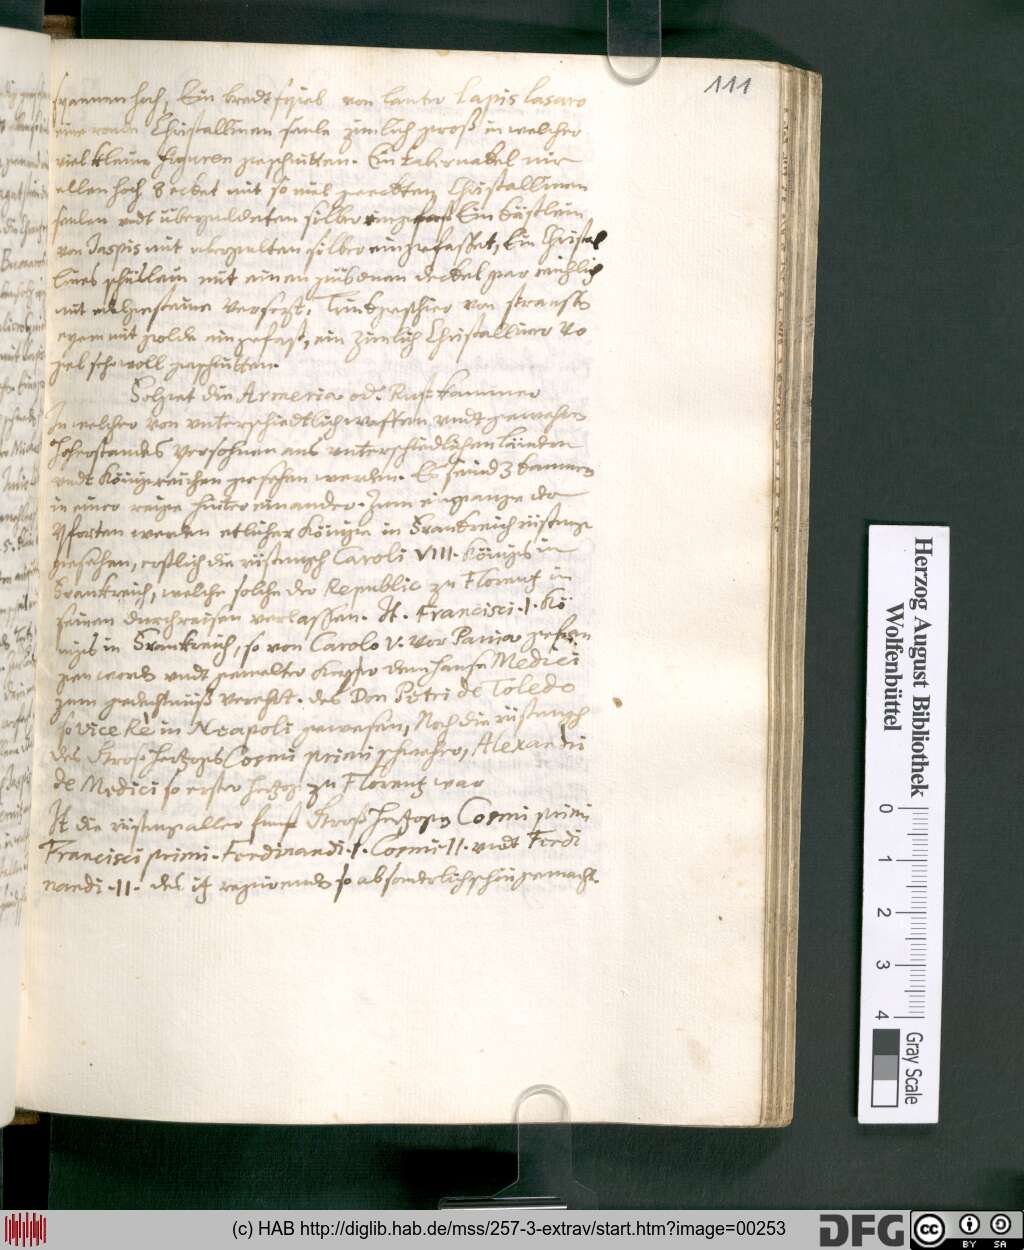 111
spannen hoch, Ein bredtspiel von lauter Lapis Lasaro
eine runde Christallinen seule zimlich groß in welcher
viel kleine figuren geschnitten. Ein tabernakel vier
ellen hoch 8 ecket mit so viel geeckten Christallinen
seulen undt überguldeten silber eingefast Ein Kästlein
von Jaspis mit uberguldten silber eingefasset, Ein Christal
lines schüslein mit einen güldenen deckel gar reichlich
mit edlgesteinen versetzt, Trinkgeschier von strauß
eyern mit golde eingefast, ein zimlich Christalliner vo
gel sehr woll geschnitten.
Folget die Armeria od. Rust kammer
In welcher von unterschiedtlich waffen undt gewehr
hoherstandes Persohnen aus unterschiedlichen länden
undt Königreichen gesehen werden. Es seind 3 kammern
in einer reige hinter einander. Zum eingange der
Pforten werden etlicher Könige in Franckreich rüstunge
gesehen, erstlich die rüstungh Caroli VIII. Königs in
Franckreich, welche solche der Republic zu Florentz in
seinen durchreisen verlassen. It. Francisci. I. Kö
nigs in Franckreich, so von Carolo V. vor Pavia gefan
gen worden undt gemelter Keyser dem hause Medici
zum gedechtnüß verehrt. des Don Petri de Toledo
so Vice Re in Neapoli gewesen, Noch die rüstungh
des Groß Hertzogs Cosmi primi gewehr, Alexandri
de Medici so erster hertzog zu Florentz war
It die rüstunge aller funf Groß Hertzogen Cosmi primi
Francisci primi. Ferdinandi. I. Cosmi. II. undt Ferdi
nandi. II. des itz regirendes so absonderlich schön gemacht.
Herzog August Bibliothek
Wolfenbüttel
0
1
2
3
4
Gray Scale
(c) HAB http://diglib.hab.de/mss/257-3-extrav/start.htm?image=00253
DFG
cc
BY SA